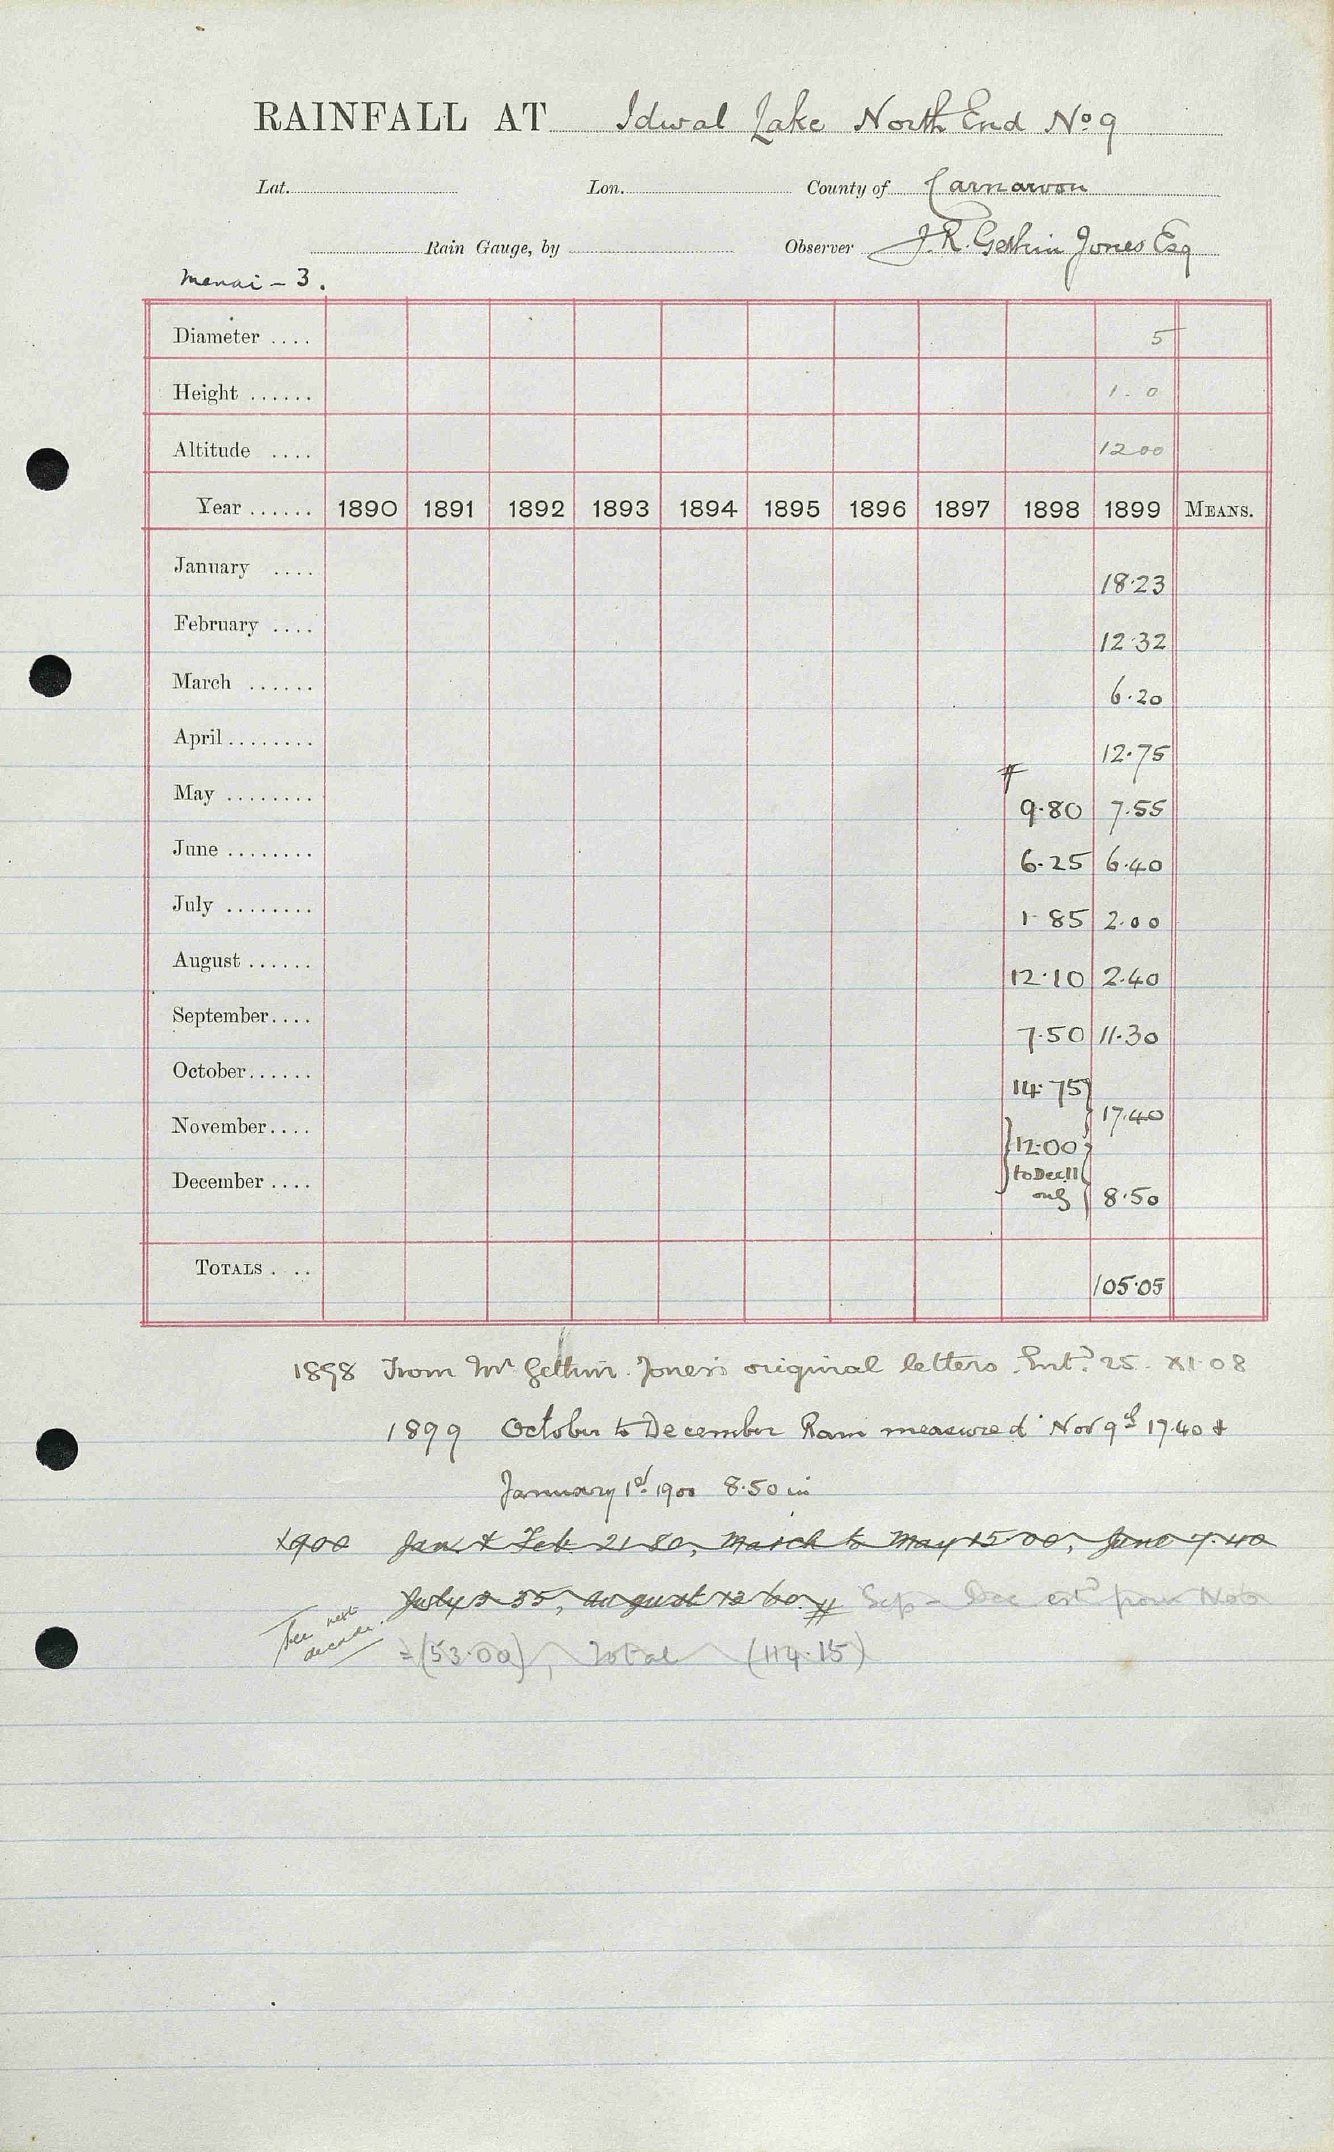 RAINFALL AT Idwal Lake North End No 9
Lat. Lon. County of Carnarvon
Rain Gauge, by Observer J. R. Gethin Jones Esq
Menai - 3.
Diameter .... 5
Height ...... 1 . 0
Altitude .... 1200
Year ...... 1890 1891 1892 1893 1894 1895 1896 1897 1898 1899 MEANS.
January .... 18.23
February .... 12.32
March ...... 6.20
April ........ 12.75
#
May ........ 9.80 7.55
June ........ 6.25 6.40
July ........ 1.85 2.00
August ...... 12.10 2.40
September.... 7.50 11.30
October...... 14.75
17.40
November.... 12.00
December .... to Dec 11
only 8.50
TOTALS . .. 105.05
1898 From Mr Gethin Jones's original letters Ent.d 25.XI.08
1899 October to December Rain measured Nov 9th 17.40 &
January 1st 1900 8.50 in
1900 Jan. & Feb 21.80, March to May 15.00, June 7.40
July 3.35, August 12.60. # Sep - Dec est from
See next
decade.
= (53.00), Total (114.15)